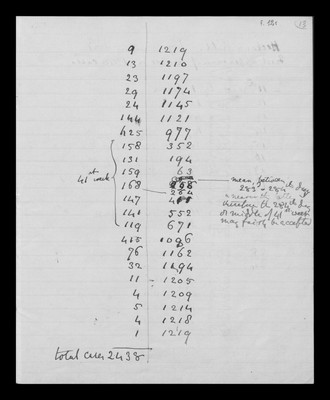 13
9 1219
13 1210
23 1197
29 1174
24 1145
144 1121
425 977
158 352
131 194
159 63
41st week
168
264
147
141 552
119 671
415 1096
76 1162
32 1194
11 - 1205
4 1209
5 1214
4 1218
1 1219
total cases 2438
mean between
283 - 284th day
therefore the 284th day
or middle of 41st week
may fairly be accepted